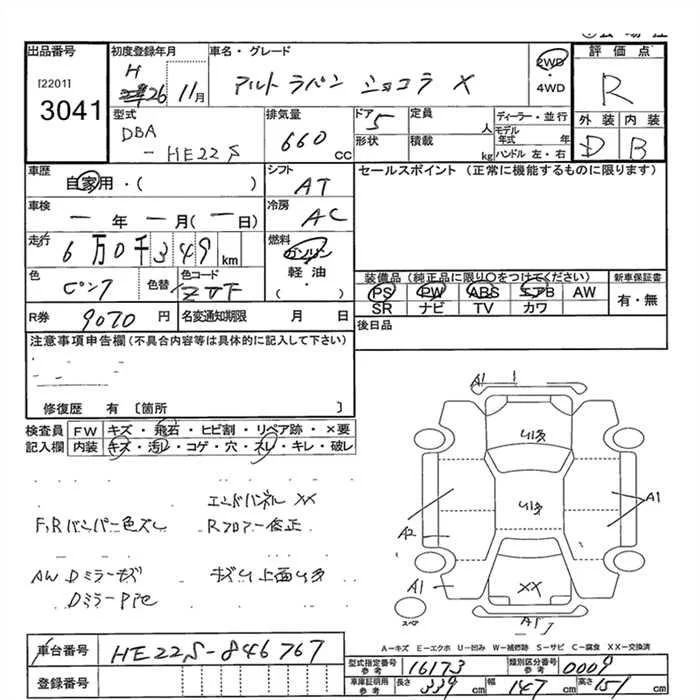 出品番号 初度登録年月 車名・グレード 評価点
[2201]
3041
H 26 11月 アルト ラパン ショコラ X 2WD
・
4WD
R
型式 排気量 ドア 定員 ディーラー・並行 外装 内装
DBA
-HE22S 660 cc 5 人 モデル年式 年 D B
形状 積載 kg ハンドル 左・右
車歴 シフト セールスポイント (正常に機能するものに限ります)
自家用・( ) AT
車検 冷房
一 年 一 月(一日) AC
走行 燃料
6万0千349 km ガソリン
軽油
・( )
装備品 (純正品に限り○をつけてください) 新車保証書
色 ピンク 色替 色コード ZVF PS PW ABS エアB AW 有・無
SR ナビ TV カワ
R券 9070 円 名変通知期限 月 日 後日品
注意事項申告欄(不具合内容等は具体的に記入して下さい)
修復歴 有 〔箇所 〕
検査員 FW キズ・飛石・ヒビ割・リペア跡・×要
記入欄 内装 キズ・汚レ・コゲ・穴・スレ・キレ・破レ
エンドパネル XX
F,Rバンパー色ズレ Rフロアー修正
AW Dミラーキズ キズU上面U多
A1 1
U多
U多
A2 A1
A1 XX
A1
スペア
A-キズ E-エクボ U-凹み W-補修跡 S-サビ C-腐食 XX-交換済
車台番号 HE22S-846767
登録番号
型式指定番号 参考 16173 類別区分番号 参考 0009
車庫証明用 参考 長さ 339 cm 幅 147 cm 高さ 151 cm